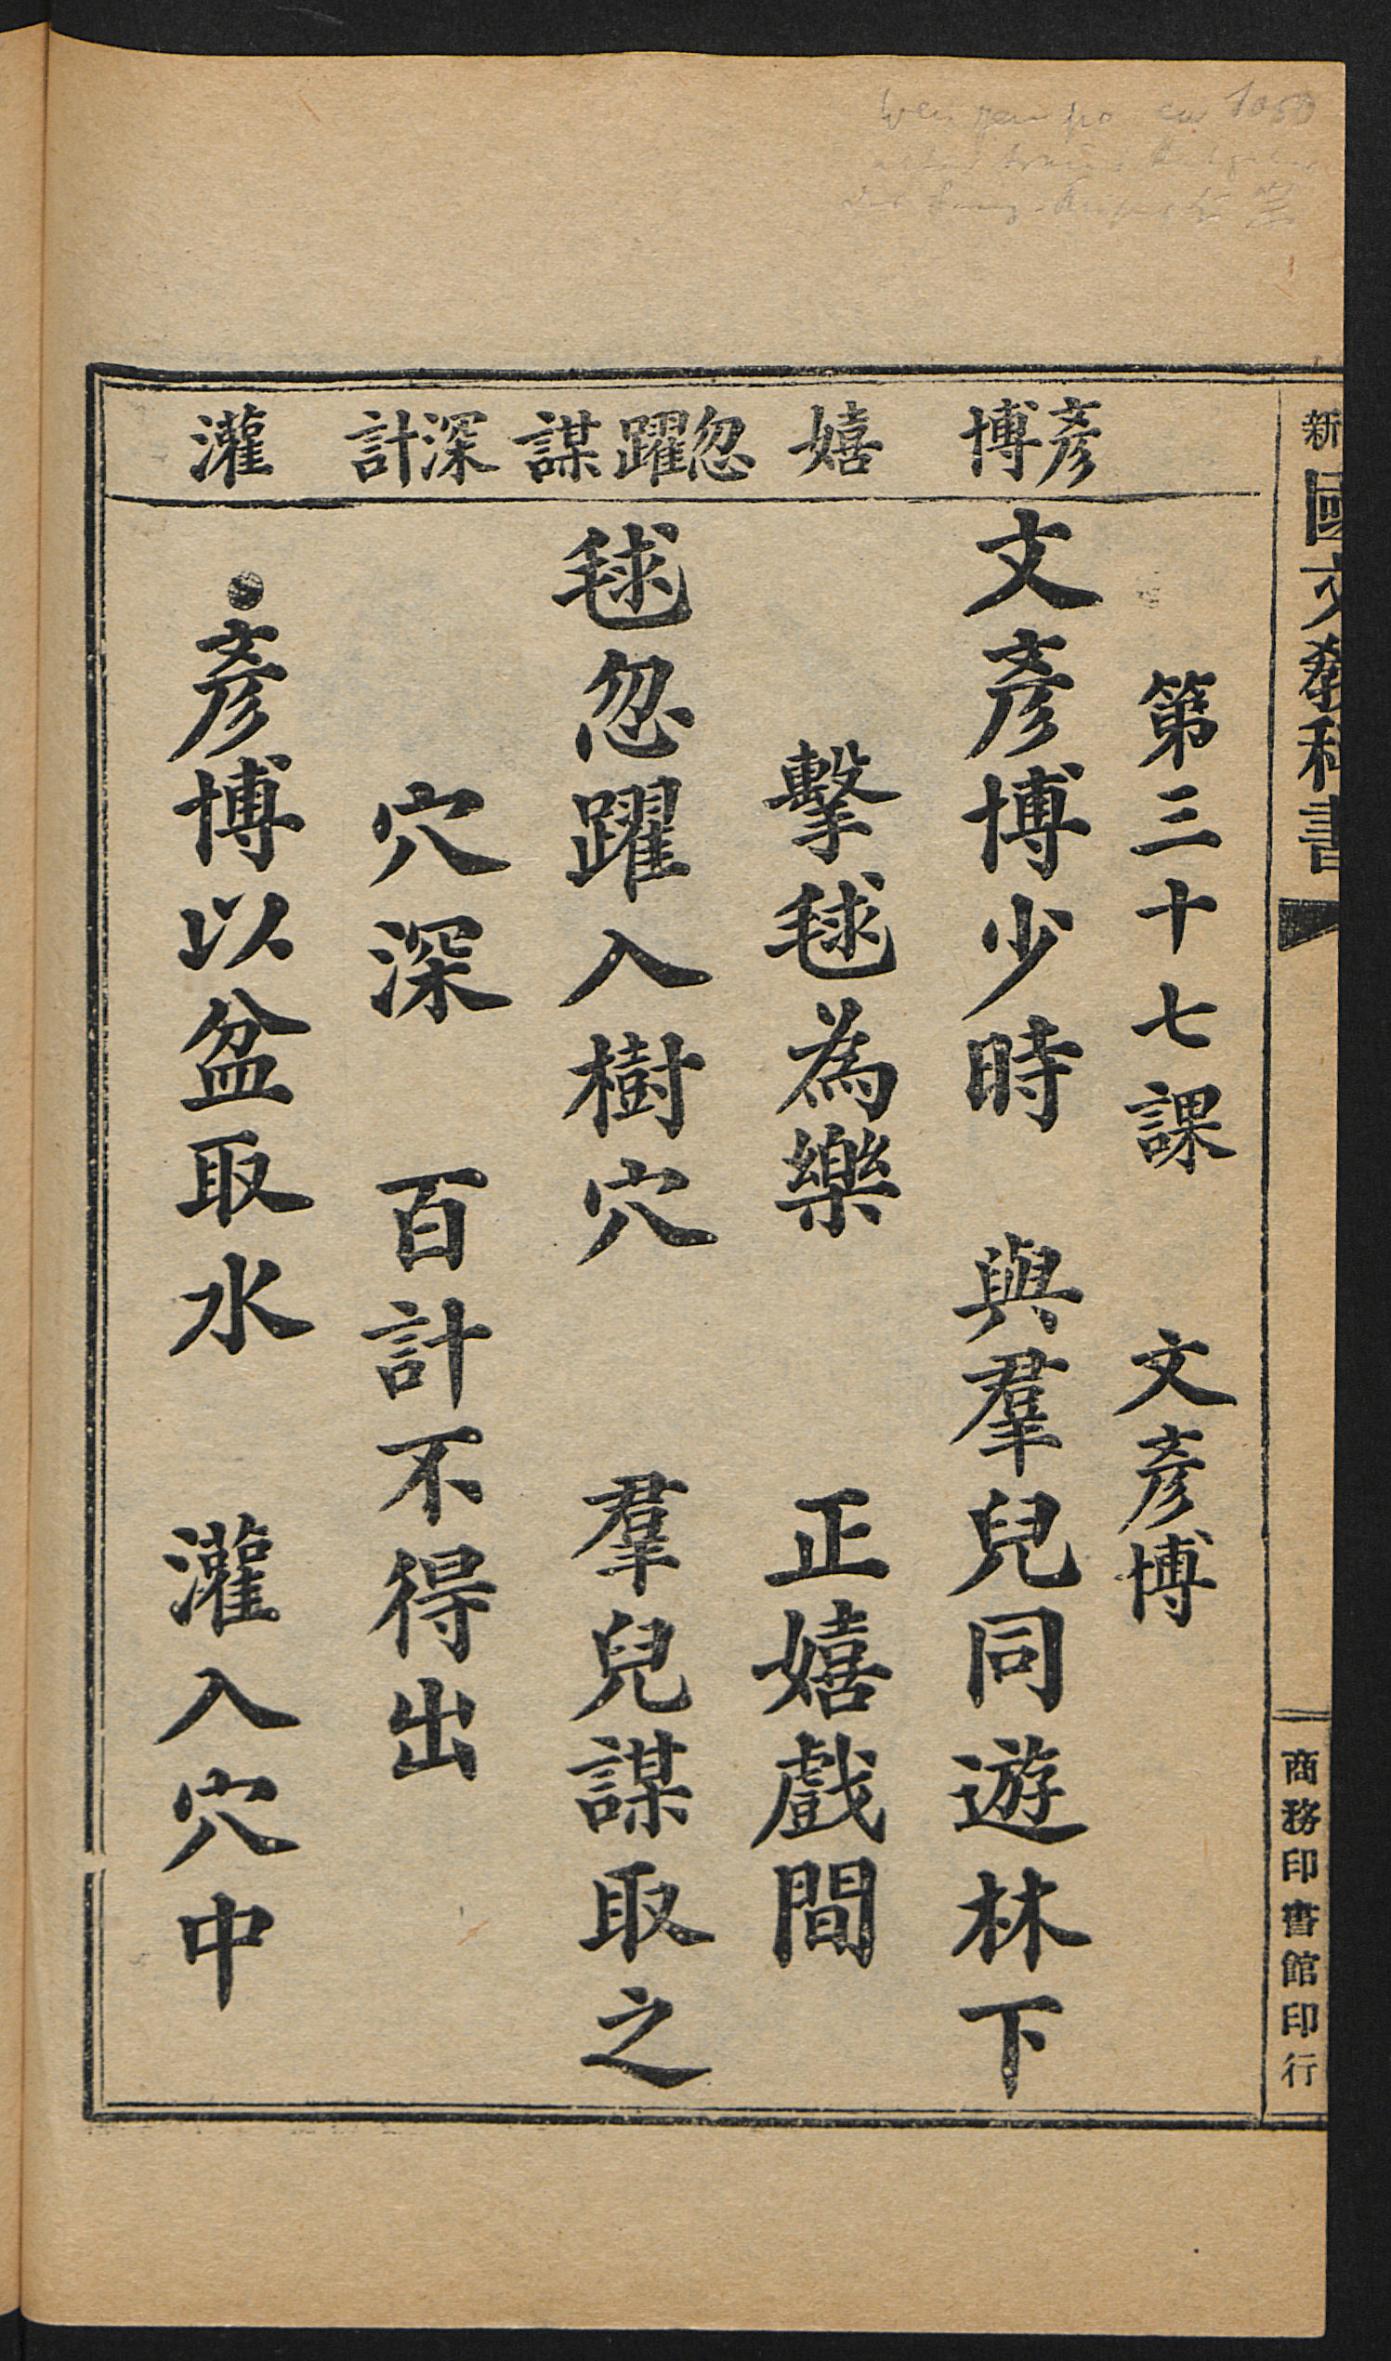 新國文教科書
商務印書館印行
第三十七課　文彥博
彥博
文彥博少時　與羣兒同遊林下
嬉
擊毬為樂　正嬉戲間
忽躍　謀
毬忽躍入樹穴　羣兒謀取之
深計
穴深　百計不得出
灌
彥博以盆取水　灌入穴中